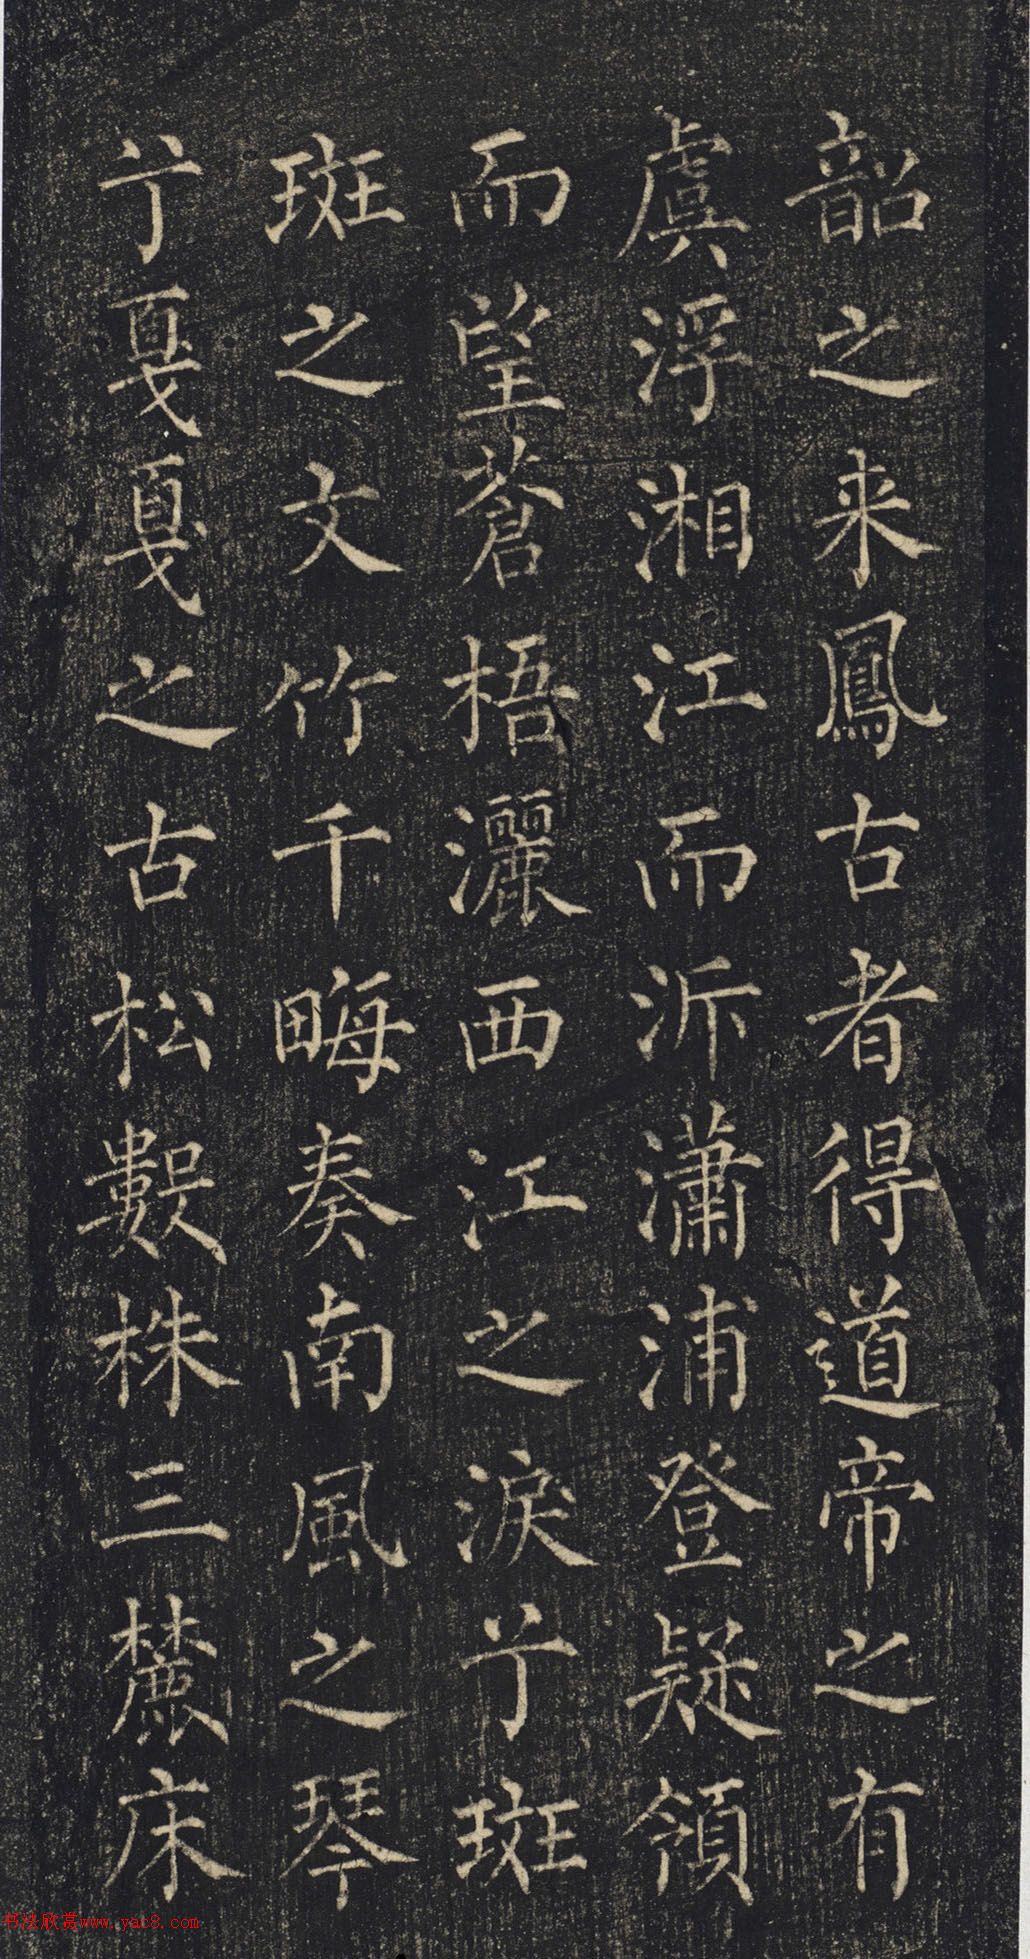 韶之来鳳古者得道帝之有
虞浮湘江而泝瀟浦登疑領
而望蒼梧灑西江之淚兮斑
斑之文竹千畮奏南風之琴
兮戛戛之古松數株三麓床
书法欣赏www.yac8.com